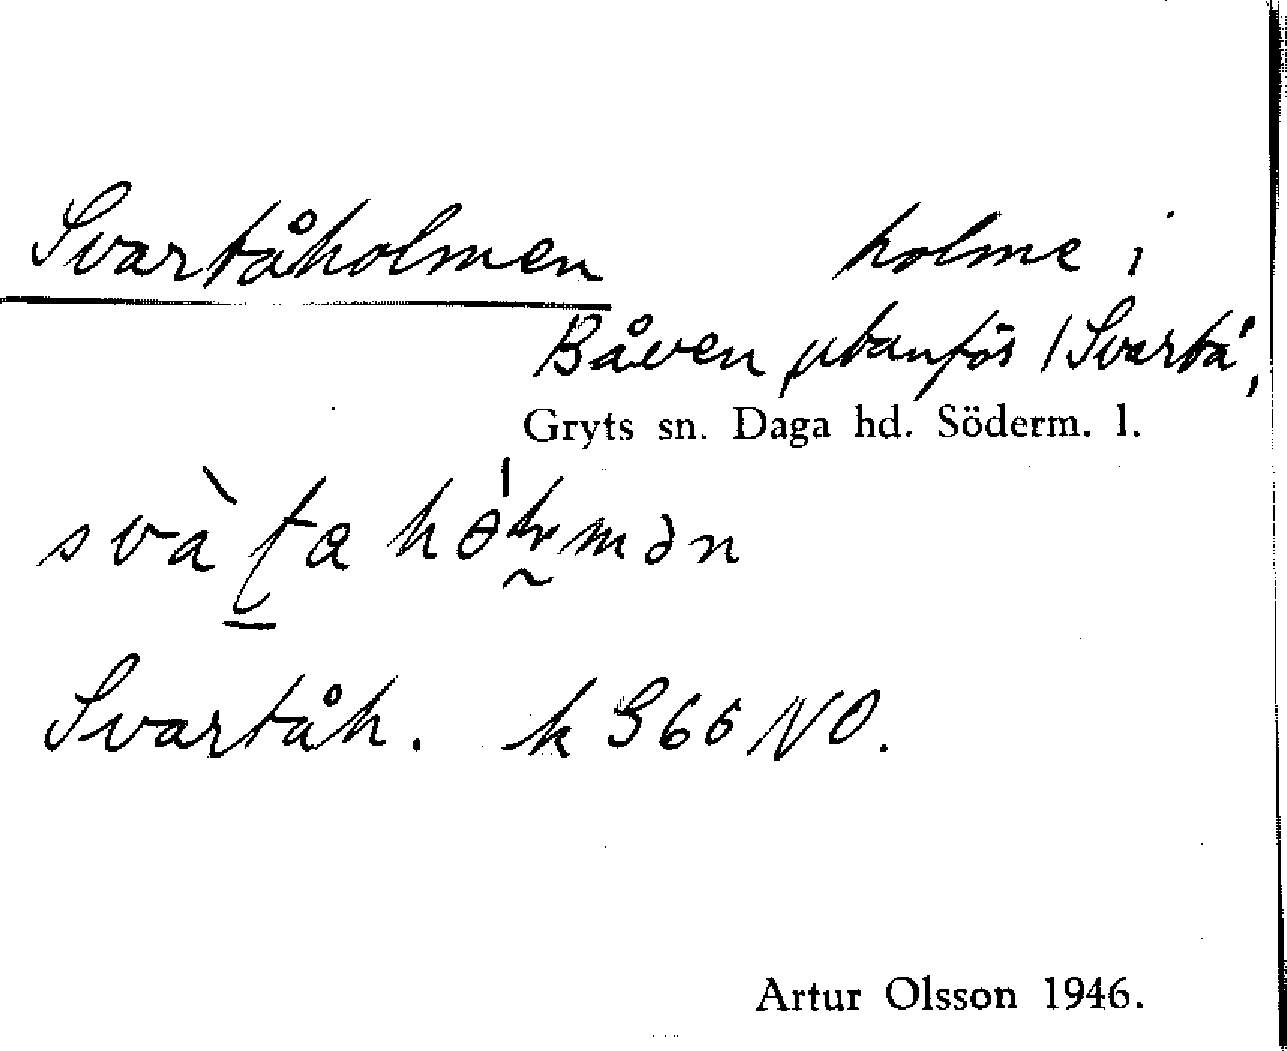 Svartåholmen holme i
Båven utanför /Svartå,
Gryts sn. Daga hd. Söderm. l.
Svartåh. k 366 NO.
Artur Olsson 1946.